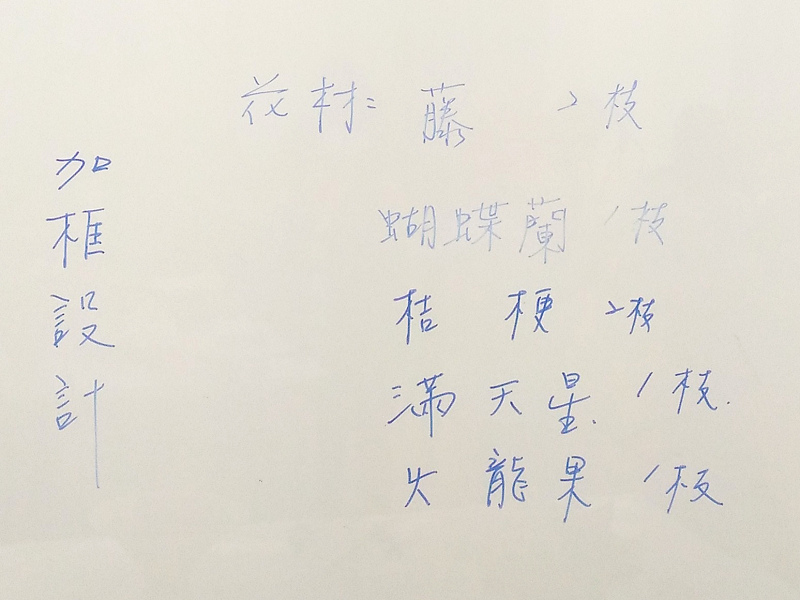 加框設計
花材: 藤 2枝
蝴蝶蘭 1枝
桔梗 2枝
滿天星. 1枝.
火龍果 1枝